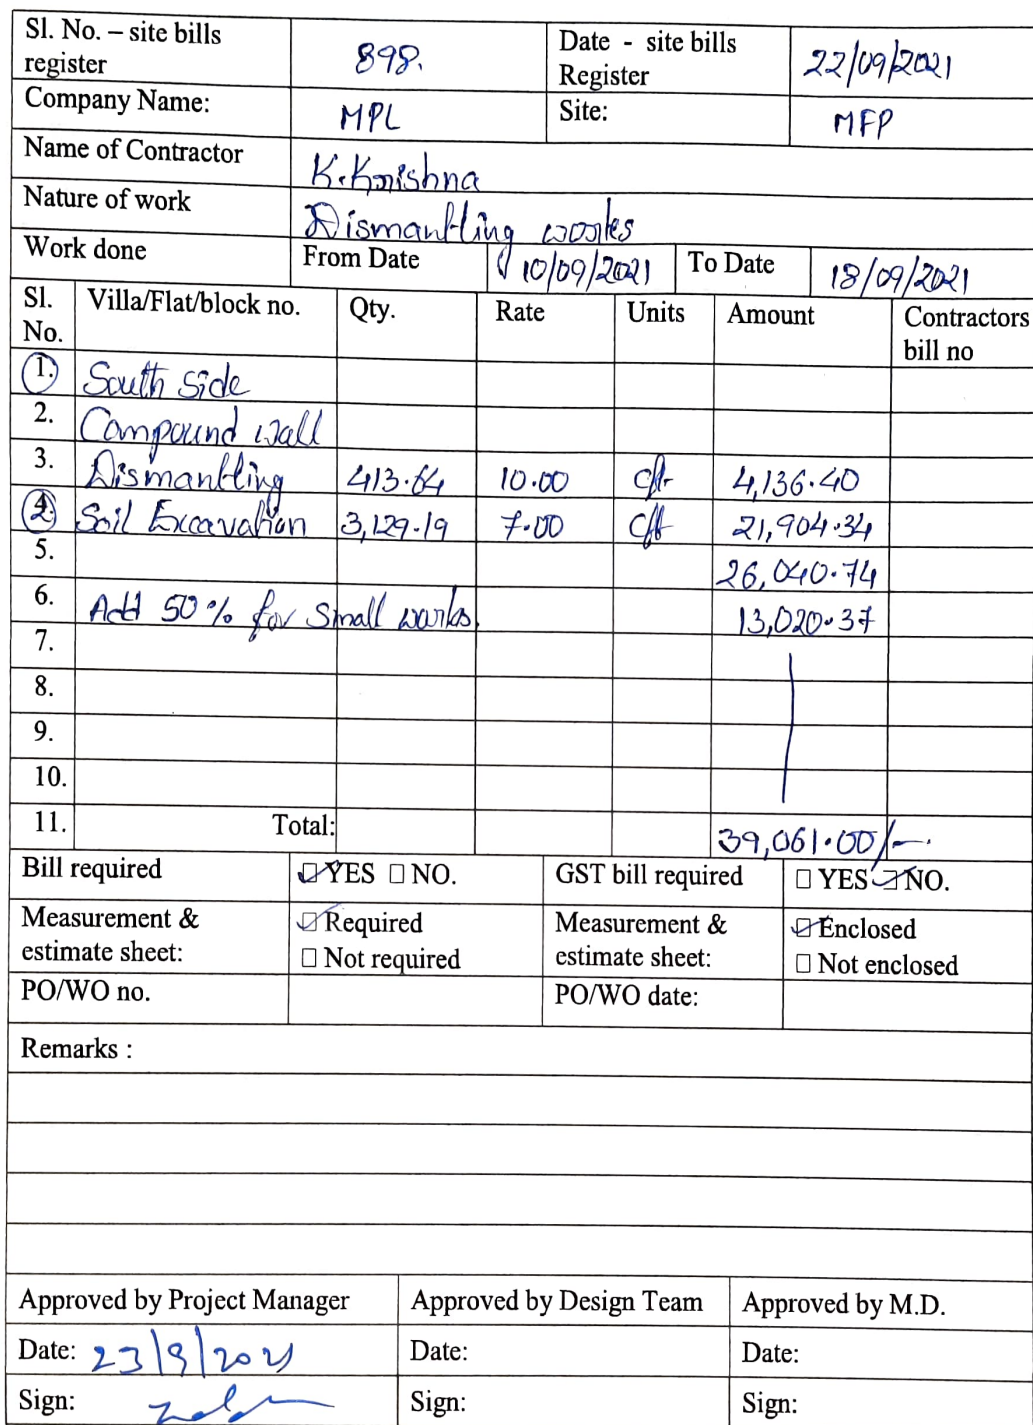 Sl. No. – site bills register 898. Date - site bills Register 22/09/2021
Company Name: MPL Site: MFP
Name of Contractor K. Krishna
Nature of work Dismantling works
Work done From Date 10/09/2021 To Date 18/09/2021
Sl. No. Villa/Flat/block no. Qty. Rate Units Amount Contractors bill no
1. South Side
2. Compound wall
3. Dismantling 413.64 10.00 cft 4,136.40
4. 2 Soil Excavation 3,129.19 7.00 cft 21,904.34
5. 26,040.74
6. Add 50% for Small works. 13,020.37
7.
8.
9.
10.
11. Total: 39,061.00/-
Bill required ☑ YES ☐ NO. GST bill required ☐ YES ☑ NO.
Measurement & estimate sheet: ☑ Required ☐ Not required Measurement & estimate sheet: ☑ Enclosed ☐ Not enclosed
PO/WO no. PO/WO date:
Remarks :
Approved by Project Manager Approved by Design Team Approved by M.D.
Date: 23/9/2021 Date: Date:
Sign: Sign: Sign: